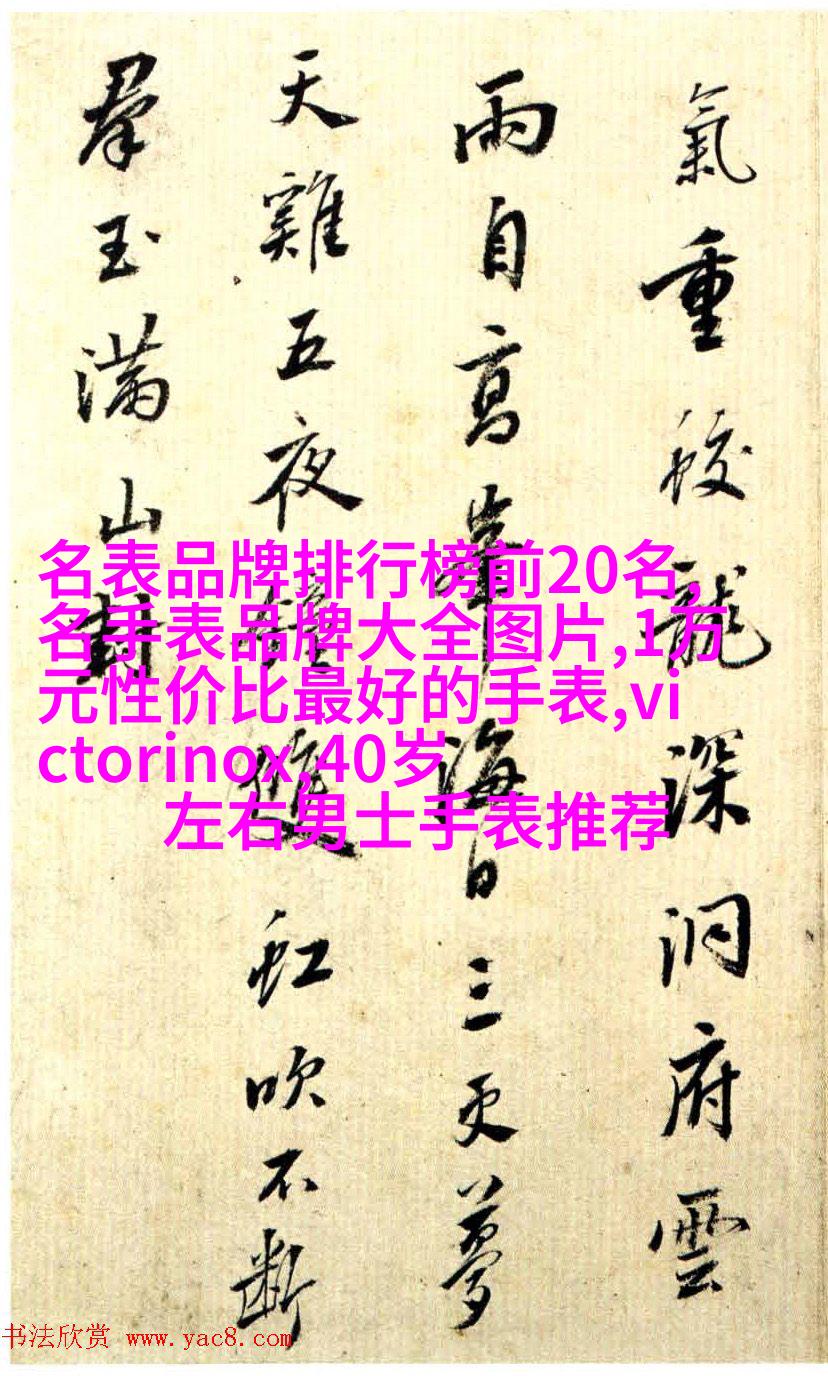 氣重蛟龍深洞府雲
雨自高峯海日三更夢
天雞五夜鐘雙虹吹不斷
羣玉滿山封
名表品牌排行榜前20名,
名手表品牌大全图片,1万
元性价比最好的手表,vi
ctorinox,40岁
左右男士手表推荐
书法欣赏 www.yac8.com